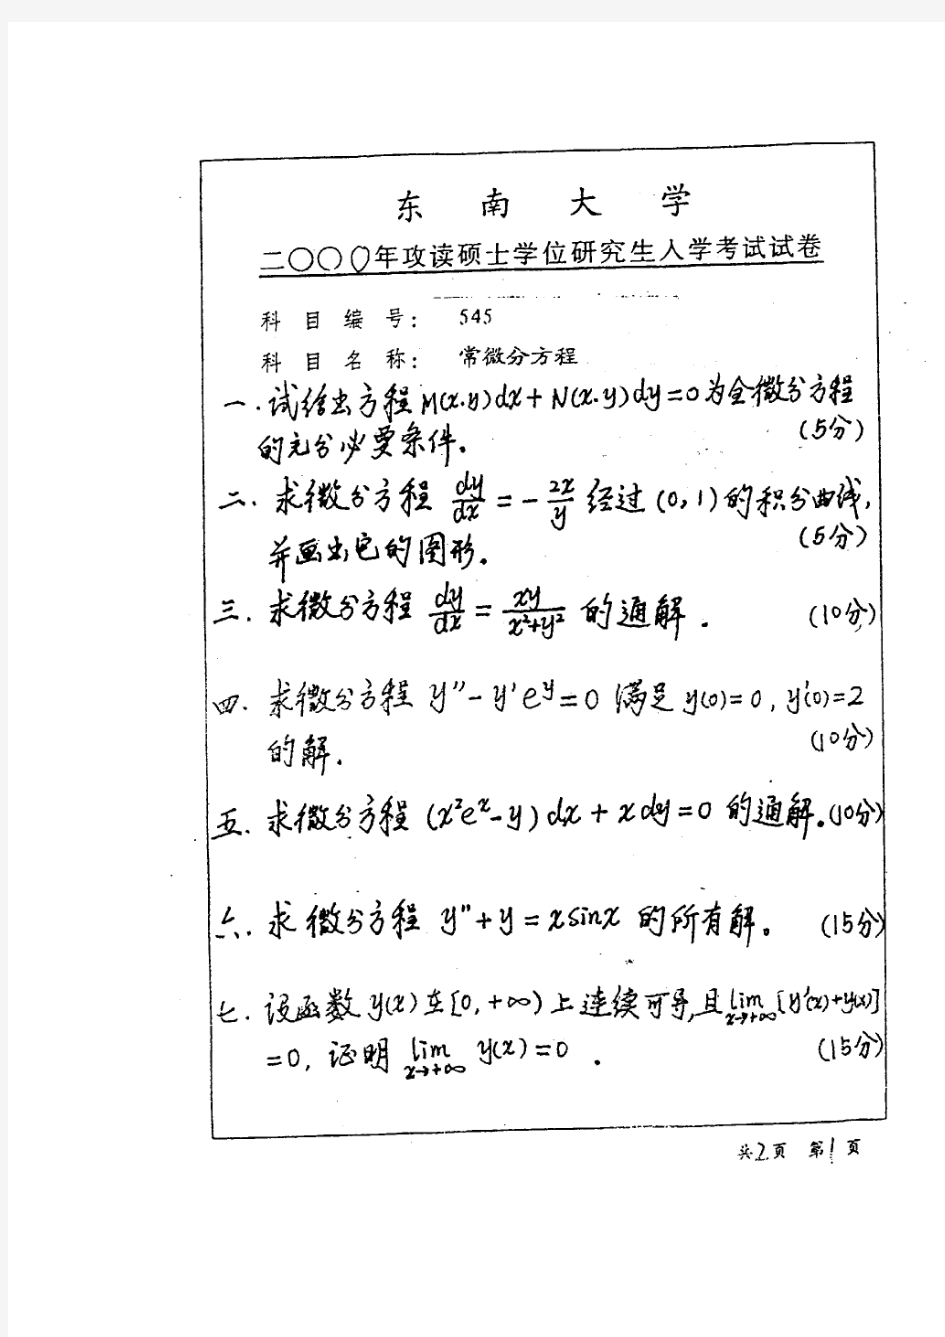 东 南 大 学
二〇〇〇年攻读硕士学位研究生入学考试试卷
科 目 编 号： 545
科 目 名 称： 常微分方程
一.试给出方程M(x.y)dx+N(x.y)dy=0为全微分方程
的充分必要条件。 (5分)
二.求微分方程 dy/dx = -2x/y 经过(0,1)的积分曲线,
并画出它的图形。 (5分)
三.求微分方程 dy/dx = xy/(x²+y²) 的通解. (10分)
四.求微分方程 y''-y'e^y=0 满足 y(0)=0, y'(0)=2
的解. (10分)
五.求微分方程 (x²e^x-y)dx+xdy=0 的通解.(10分)
六.求微分方程 y''+y=xsinx 的所有解。 (15分)
七.设函数y(x)在[0,+∞)上连续可导,且lim x→+∞ [y'(x)+y(x)]
=0, 证明 lim x→+∞ y(x)=0 . (15分)
共2页 第1页